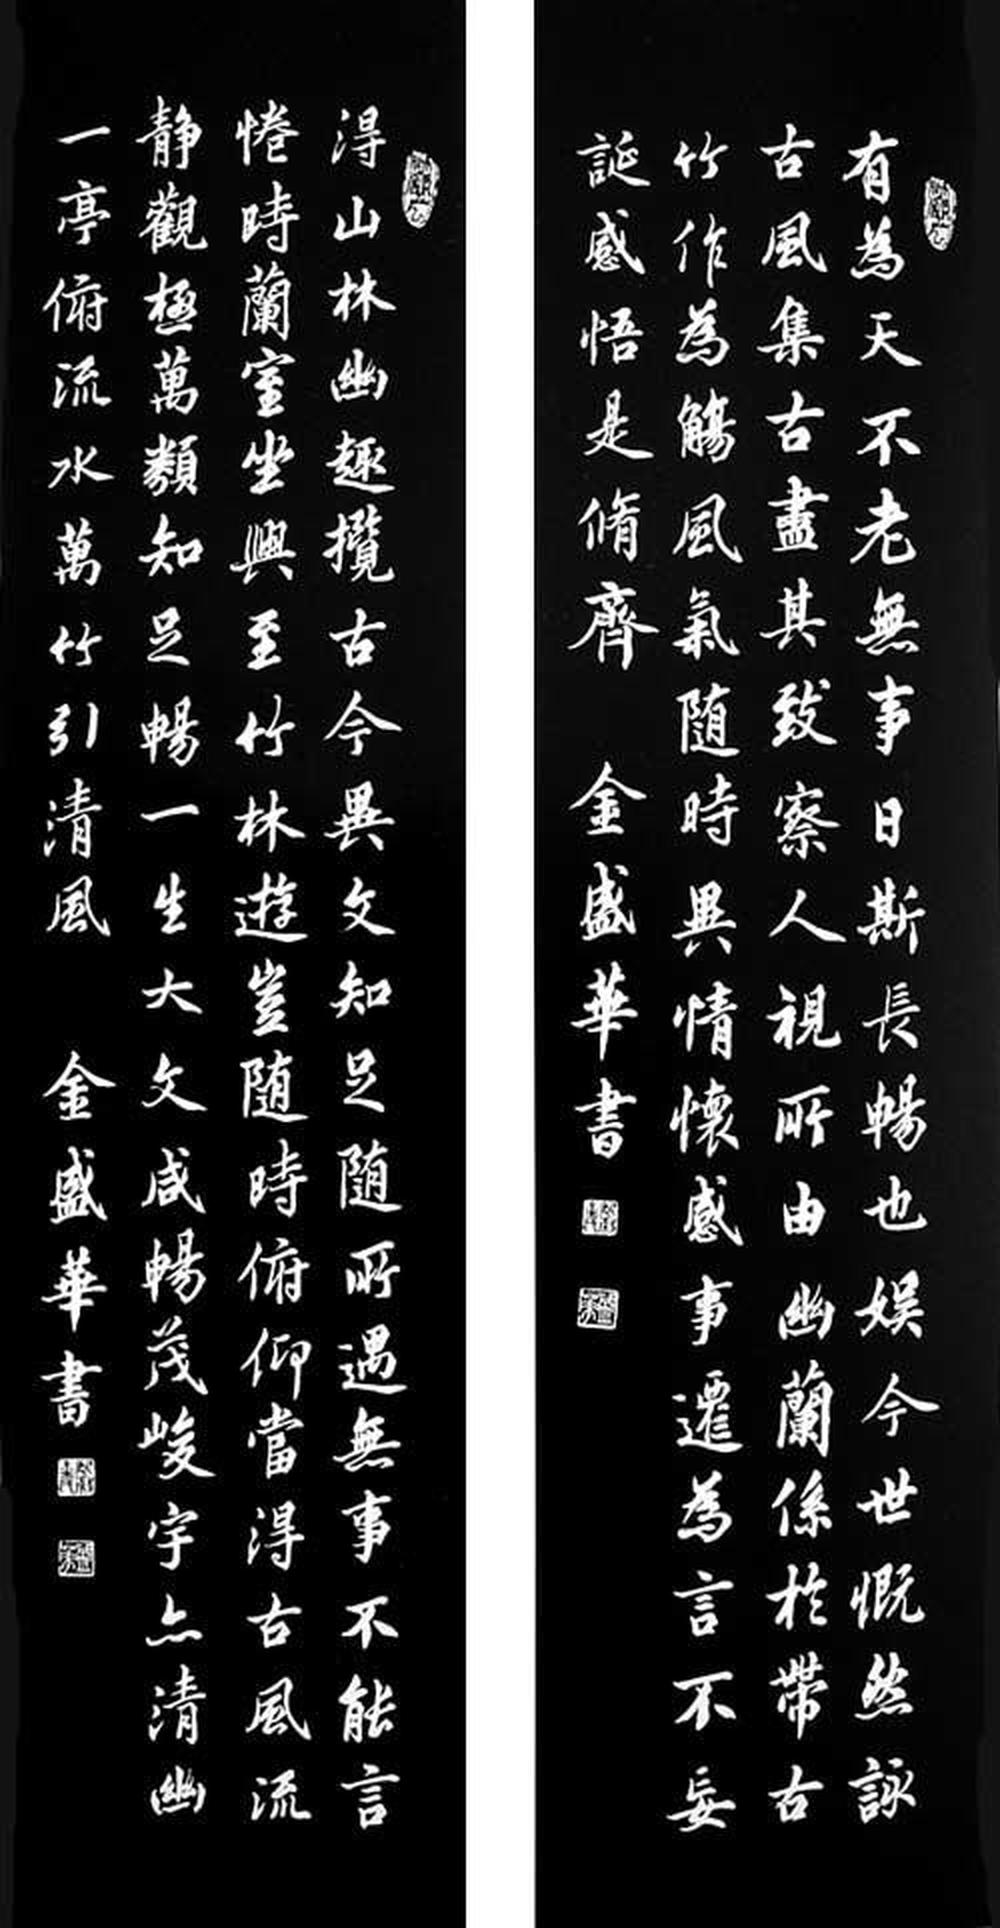 有為天不老無事日斯長暢也娛今世慨然詠
古風集古盡其致察人視所由幽蘭係於帶古
竹作為觴風氣随時異情懷感事遷為言不妄
誕感悟是脩齊 金盛華書
得山林幽趣攬古今異文知足随所遇無事不能言
惓時蘭室坐興至竹林遊豈随時俯仰當得古風流
靜觀極萬類知足暢一生大文咸暢茂峻宇亦清幽
一亭俯流水萬竹引清風 金盛華書